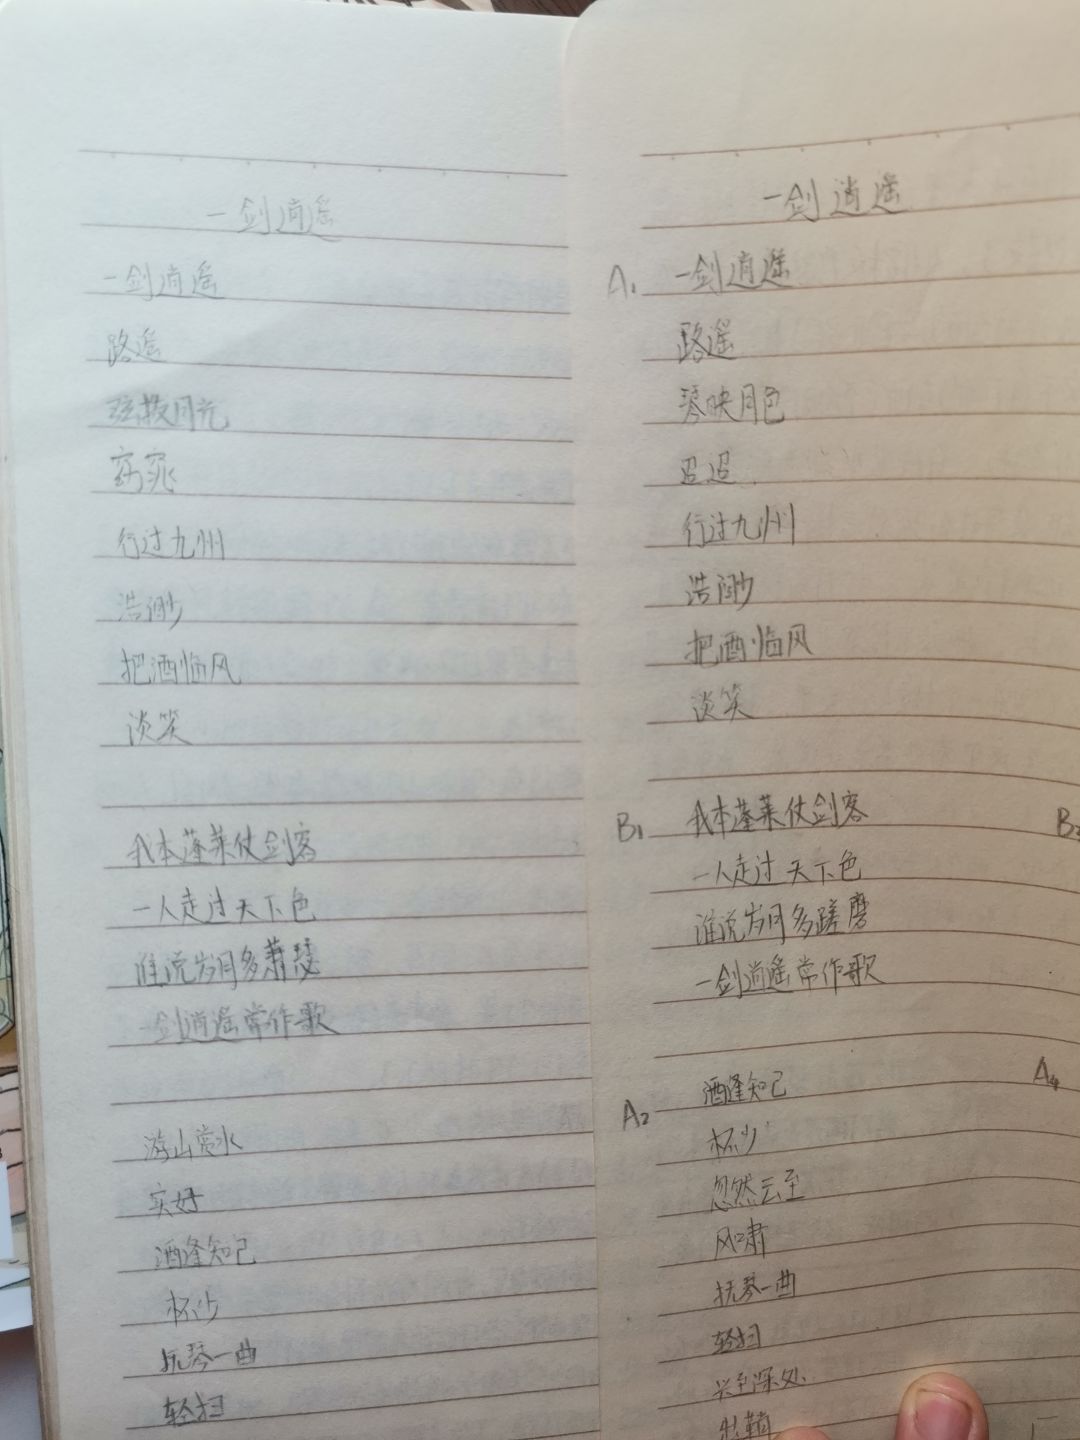 一剑逍遥
一剑逍遥
路遥
弦拨月光
窈窕
行过九州
浩渺
把酒临风
淡笑
我本蓬莱仗剑客
一人走过天下色
谁说岁月多萧瑟
一剑逍遥常作歌
游山赏水
实好
酒逢知己
杯少
抚琴一曲
轻扫
一剑逍遥
A1 一剑逍遥
路遥
琴映月色
迢迢
行过九州
浩渺
把酒临风
淡笑
B1 我本蓬莱仗剑客
一人走过天下色
谁说岁月多蹉磨
一剑逍遥常作歌
A2 酒逢知己
杯少
忽然云至
风啸
抚琴一曲
轻扫
兴至深处
出鞘
B2
A4